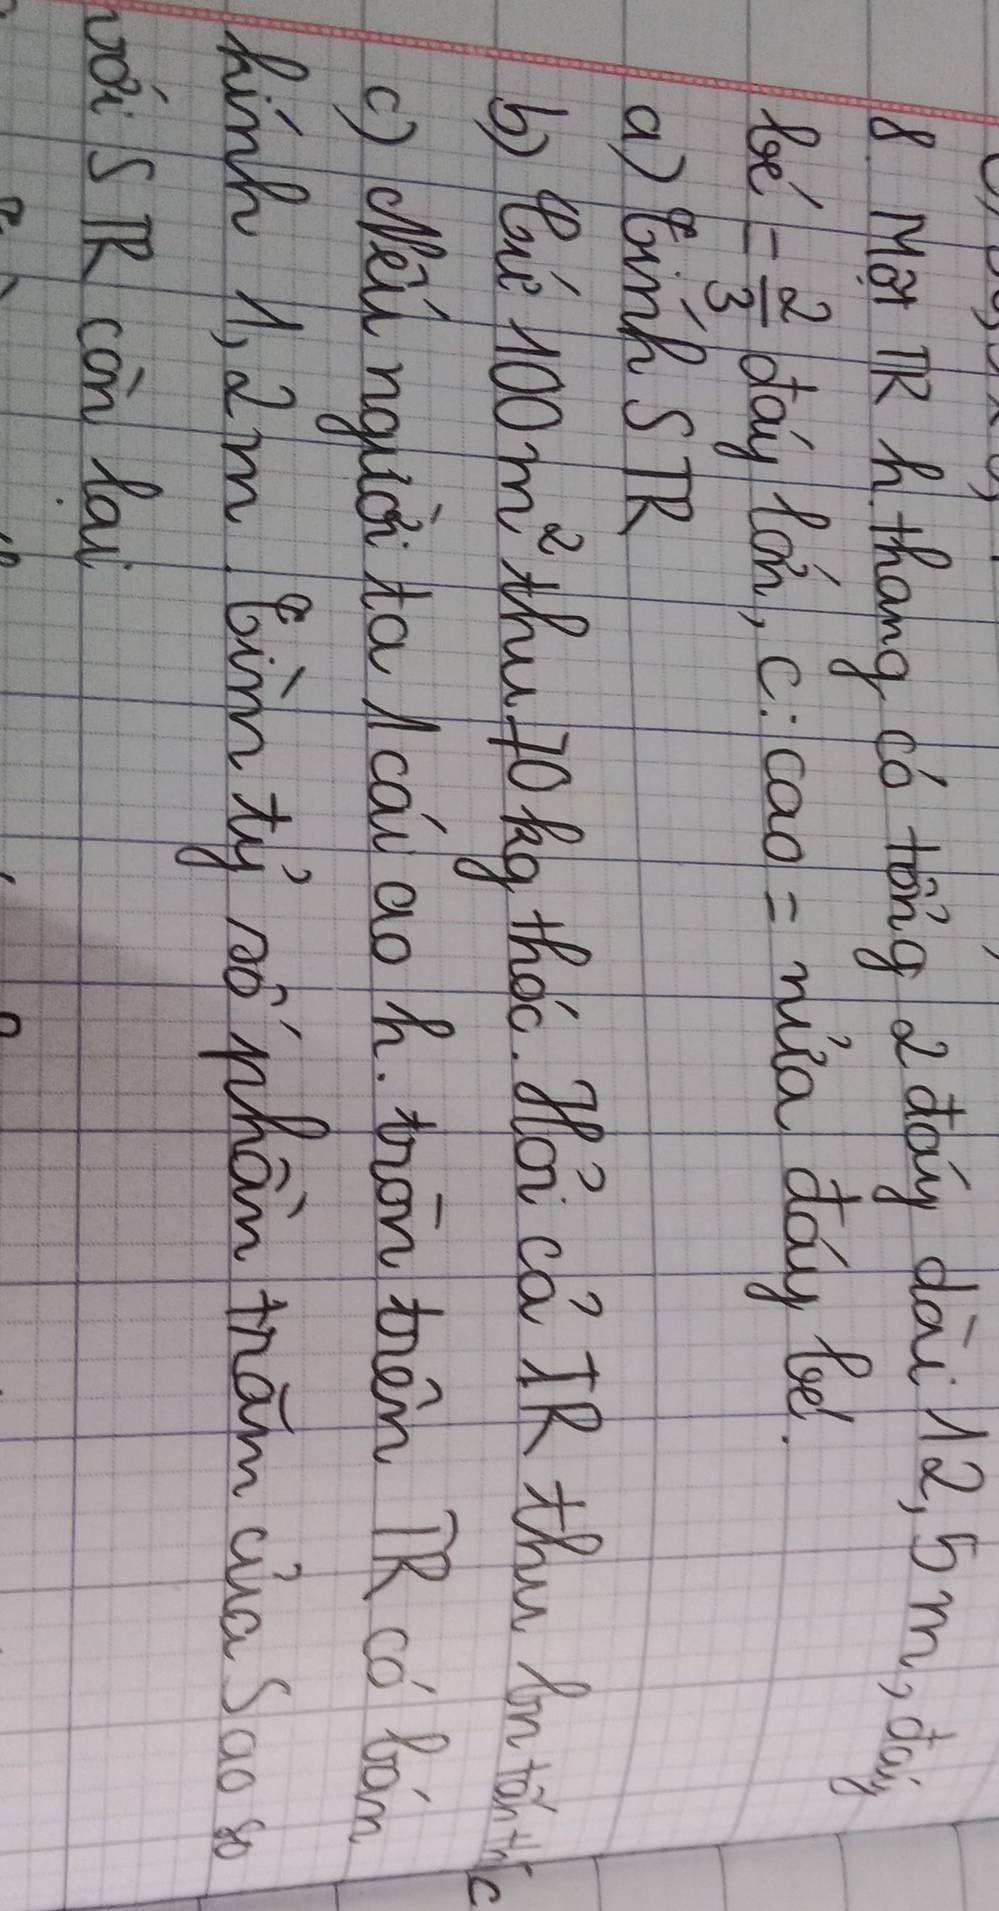 8. Một TR h.thang có tổng 2 đáy dài 12,5 m, đáy
bé = 2/3 đáy lớn, c.cao = nửa đáy bé.
a) Tính S TR
b) Cứ 100 m² thu 70 kg thóc. Hỏi cả TR thu bn tấn thóc
c) Nếu người ta 1 cái ao h.tròn trên TR có bán
kính 1,2 m. Tìm tỷ số phần trăm của S ao so
với S TR còn lại